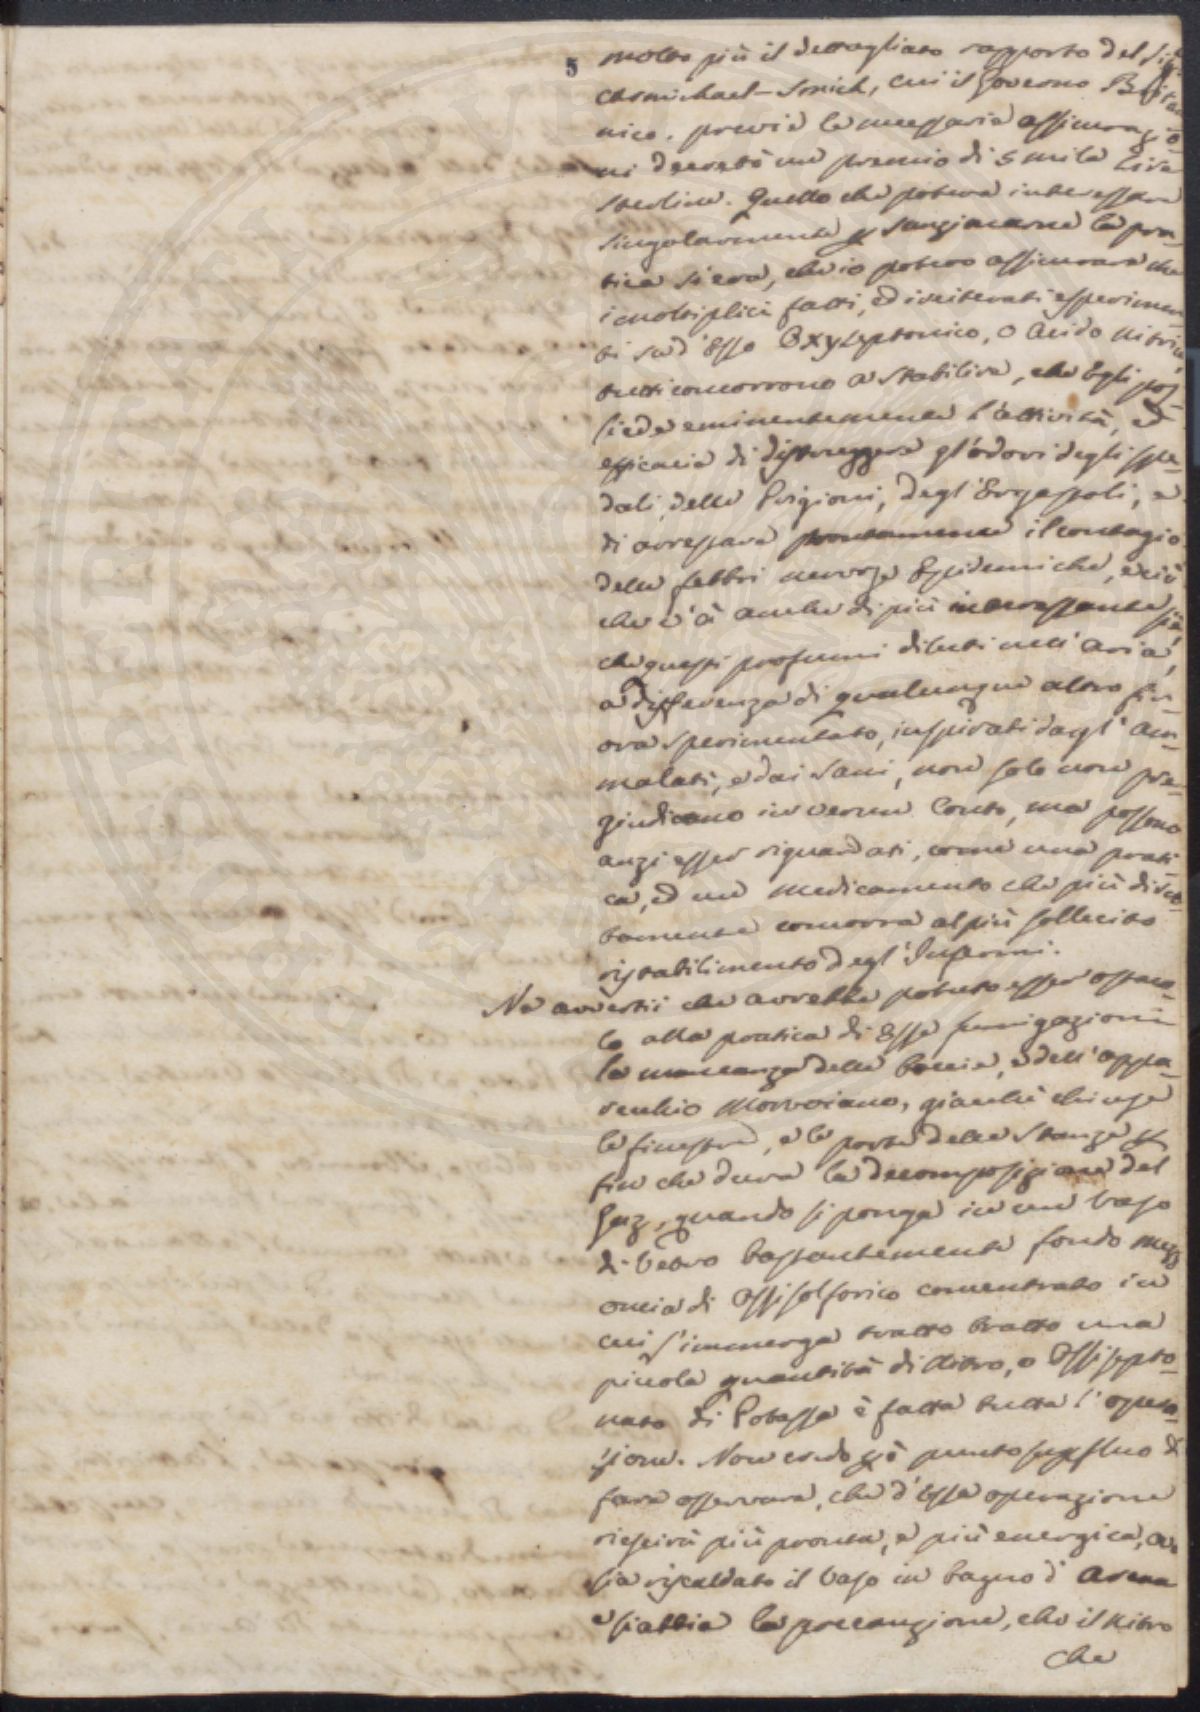 5
molto più il dettagliato rapporto del Sigr
Carmichael-Smich, cui il Governo Britan
nico, previe le necessarie assicurazio
ni decretò un premio di 5 mila Lire
sterline. Quello che poteva interessare
singolarmente p sanzionarne la pra-
tica si era, che io potevo assicurare che
i moltiplici fatti, ed i reiterati esperimen
ti su d'Esso Oxyseptonico, o Acido Nitrico,
tutti concorrono a stabilire, che Egli pos-
siede eminentemente l'attività, ed
efficacia di distruggere gl'odori degli spe-
dali, delle Prigioni, degl'Ergastoli, e
di arrestare prontamente il contagio
delle febbri nervose Epidemiche, e ciò
che v'à anche di più interessante si è,
che questi profumi diluti nell'aria,
a differenza di qualunque altro fin-
ora sperimentato, inspirati dagl'am-
malati, e dai sani, non solo non pre-
giudicano in verun Conto, ma possono
anzi esser riguardati, come una prati
ca, ed un medicamento che più diret-
tamente concorra al più sollecito
ristabilimento degl'Infermi.
Ne avvertii che avrebbe potuto esser ostaco-
lo alla pratica di Esse fumigazioni
la mancanza delle boccie, e dell'appa-
recchio Morvoiano, giacchè chiuse
le finestre, e le porte delle Stanze p
fin che dura la decomposizione del
Gaz, quando si ponga in un vaso
di Vetro bastantemente fondo mezz
oncia di Ossisolforico concentrato in
cui s'immerga tratto tratto una
piccola quantità di Nitro, o Ossisepto-
nato di Potassa è fatta tutta l'opera-
zione. Non credo p ò punto supfluo di
fare osservare, che d'Essa operazione
riescirà più pronta, e più energica, ove
sia riscaldato il vaso in bagno d'arena
e si abbia la precauzione, che il Nitro
che